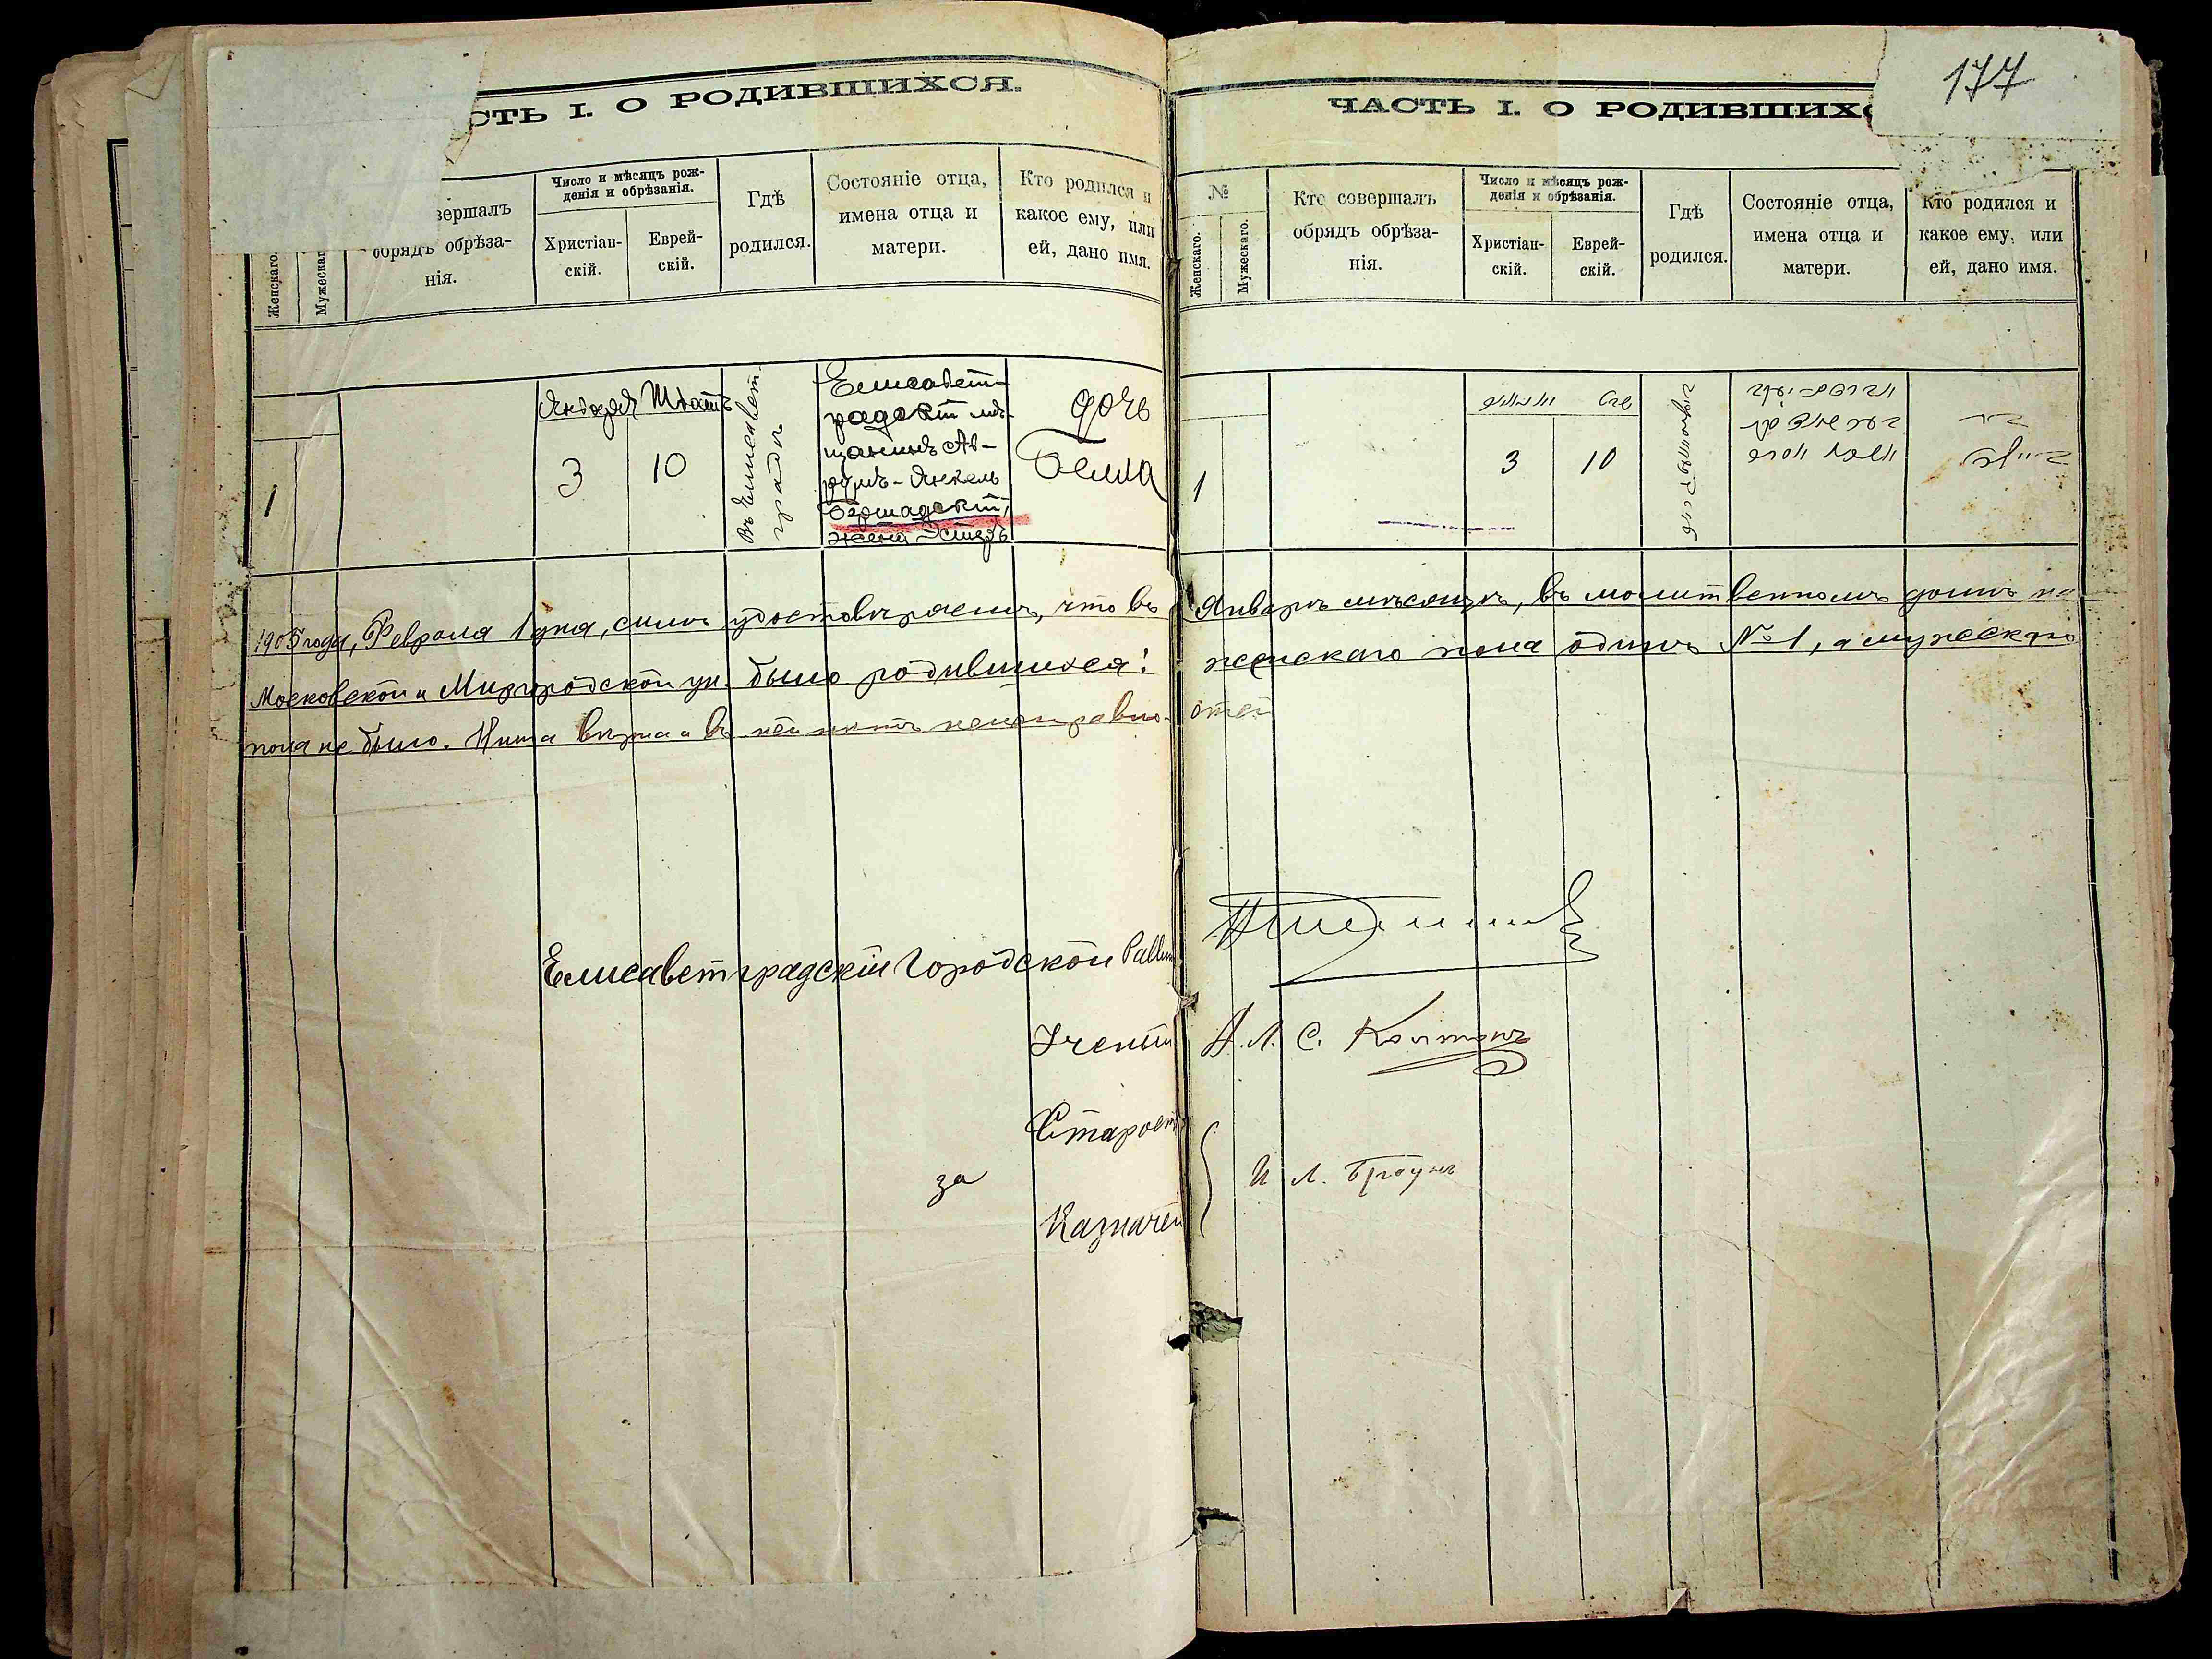 СТЬ I. О РОДИВШИХСЯ.
Женскаго.
Мужескаг
вершалъ
обрядъ обрѣза-
нія.
Число и мѣсяцъ рож-
денія и обрѣзанія.
Христіан-
скій.
Еврей-
скій.
Гдѣ
родился.
Состояніе отца,
имена отца и
матери.
Кто родился и
какое ему, или
ей, дано имя.
1
Января
3
Шватъ
10
въ Елисавет
градѣ
Елисавет-
градскій мѣ-
щанинъ Ав-
румъ-Янкель
Бершадскій,
жена Эстеръ
дочь
177
ЧАСТЬ I. О РОДИВШИХС
№
Женскаго.
Мужескаго.
Кто совершалъ
обрядъ обрѣза-
нія.
Число и мѣсяцъ рож-
денія и обрѣзанія.
Христіан-
скій.
Еврей-
скій.
Гдѣ
родился.
Состояніе отца,
имена отца и
матери.
Кто родился и
какое ему, или
ей, дано имя.
1
3
10
1905 года, Февраля 1 дня, симъ удостовѣряемъ, что въ Январѣ мѣсяцѣ, въ молитвенномъ домѣ на
Московской и Миргородской ул. было родившихся: женскаго пола одинъ №1, а мужескаго
пола не было. вѣрна и въ ней нѣтъ неисправно-
стей
Елисаветградскій Городской Равви
Ученый
А. Л. С. Колтонъ
Старост
за
Казначей
И Л. Браунъ